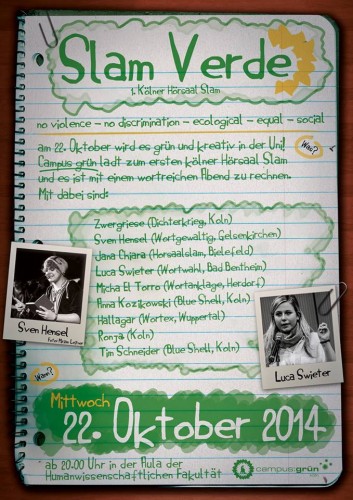 Slam Verde
1. Kölner Hörsaal Slam
no violence – no discrimination – ecological – equal – social
am 22. Oktober wird es grün und kreativ in der Uni!
Was?
Campus:grün lädt zum ersten kölner Hörsaal Slam
und es ist mit einem wortreichen Abend zu rechnen.
Mit dabei sind:
Zwergriese (Dichterkrieg, Köln)
Sven Hensel (Wortgewaltig, Gelsenkirchen)
Jana Chiara (Hörsaalslam, Bielefeld)
Luca Swieter (Wortwahl, Bad Bentheim)
Micha El Torro (Wortanklage, Herdorf)
Anna Kozikowski (Blue Shell, Köln)
Hallagar (Wortex, Wuppertal)
Ronja (Köln)
Tim Schneider (Blue Shell, Köln)
Sven Hensel
Luca Swieter
Wann?
Mittwoch
22. Oktober 2014
ab 20:00 Uhr in der Aula der
Humanwissenschaftlichen Fakultät
campus:grün